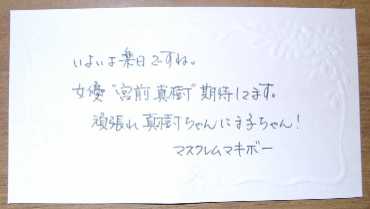 いよいよ楽日ですね。
女優"宮前真樹"期待してます。
頑張れ真樹ちゃんに子ちゃん!
マスクレムマキボー